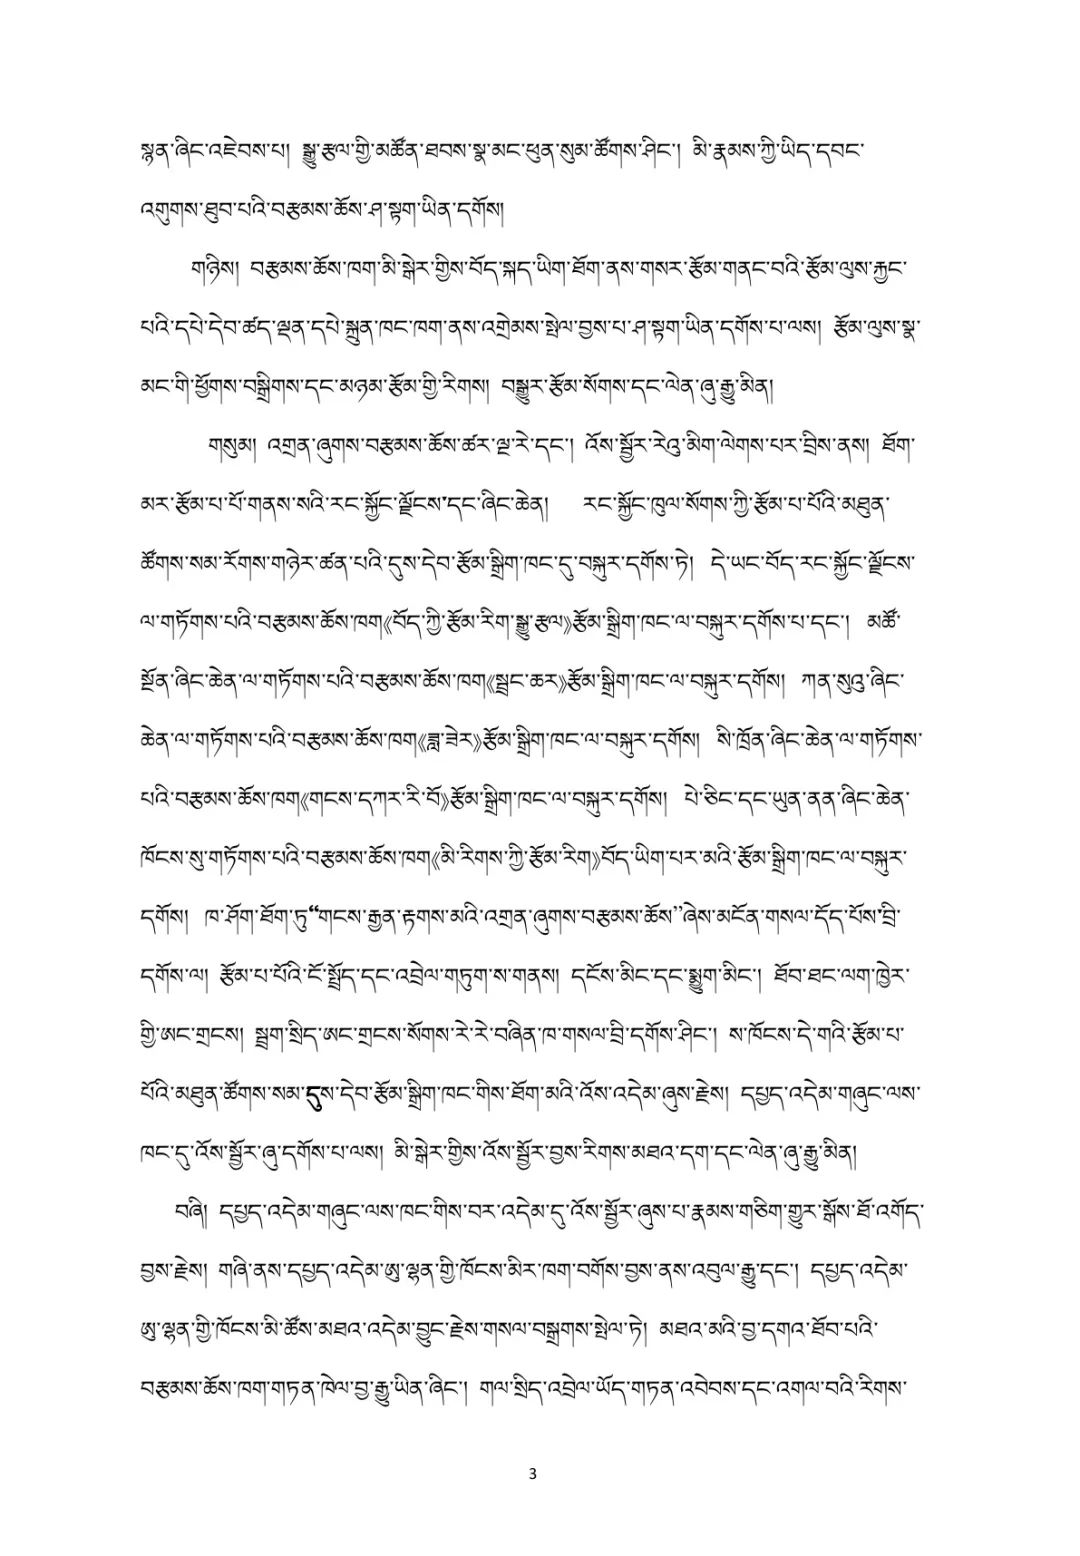 སྙན་ཞིང་འཇེབས་པ། སྒྱུ་རྩལ་གྱི་མཚོན་ཐབས་སྣ་མང་ཕུན་སུམ་ཚོགས་ཤིང་། མི་རྣམས་ཀྱི་ཡིད་དབང་
འགུགས་ཐུབ་པའི་བརྩམས་ཆོས་ཤ་སྟག་ཡིན་དགོས།
གཉིས། བརྩམས་ཆོས་ཁག་མི་སྒེར་གྱིས་བོད་སྐད་ཡིག་ཐོག་ནས་གསར་རྩོམ་གནང་བའི་རྩོམ་ལུས་རྐྱང་
པའི་དཔེ་དེབ་ཚད་ལྡན་དཔེ་སྐྲུན་ཁང་ཁག་ནས་འགྲེམས་སྤེལ་བྱས་པ་ཤ་སྟག་ཡིན་དགོས་པ་ལས། རྩོམ་ལུས་སྣ་
མང་གི་ཕྱོགས་བསྒྲིགས་དང་མཉམ་རྩོམ་གྱི་རིགས། བསྒྱུར་རྩོམ་སོགས་དང་ལེན་ཞུ་རྒྱུ་མིན།
གསུམ། འགྲན་ཞུགས་བརྩམས་ཆོས་ཚར་ལྔ་རེ་དང་། འོས་སྦྱོར་རེའུ་མིག་ལེགས་པར་བྲིས་ནས། ཐོག་
མར་རྩོམ་པ་པོ་གནས་སའི་རང་སྐྱོང་ལྗོངས་དང་ཞིང་ཆེན། རང་སྐྱོང་ཁུལ་སོགས་ཀྱི་རྩོམ་པ་པོའི་མཐུན་
ཚོགས་སམ་རོགས་གཉེར་ཚན་པའི་དུས་དེབ་རྩོམ་སྒྲིག་ཁང་དུ་བསྐུར་དགོས་ཏེ། དེ་ཡང་བོད་རང་སྐྱོང་ལྗོངས་
ལ་གཏོགས་པའི་བརྩམས་ཆོས་ཁག《བོད་ཀྱི་རྩོམ་རིག་སྒྱུ་རྩལ》རྩོམ་སྒྲིག་ཁང་ལ་བསྐུར་དགོས་པ་དང་། མཚོ་
སྔོན་ཞིང་ཆེན་ལ་གཏོགས་པའི་བརྩམས་ཆོས་ཁག《སྦྲང་ཆར》རྩོམ་སྒྲིག་ཁང་ལ་བསྐུར་དགོས། ཀན་སུའུ་ཞིང་
ཆེན་ལ་གཏོགས་པའི་བརྩམས་ཆོས་ཁག《ཟླ་ཟེར》རྩོམ་སྒྲིག་ཁང་ལ་བསྐུར་དགོས། སི་ཁྲོན་ཞིང་ཆེན་ལ་གཏོགས་
པའི་བརྩམས་ཆོས་ཁག《གངས་དཀར་རི་བོ》རྩོམ་སྒྲིག་ཁང་ལ་བསྐུར་དགོས། པེ་ཅིང་དང་ཡུན་ནན་ཞིང་ཆེན་
ཁོངས་སུ་གཏོགས་པའི་བརྩམས་ཆོས་ཁག《མི་རིགས་ཀྱི་རྩོམ་རིག》བོད་ཡིག་པར་མའི་རྩོམ་སྒྲིག་ཁང་ལ་བསྐུར་
དགོས། ཁ་ཤོག་ཐོག་ཏུ“གངས་རྒྱན་རྟགས་མའི་འགྲན་ཞུགས་བརྩམས་ཆོས”ཞེས་མངོན་གསལ་དོད་པོས་བྲི་
དགོས་ལ། རྩོམ་པ་པོའི་ངོ་སྤྲོད་དང་འབྲེལ་གཏུག་ས་གནས། དངོས་མིང་དང་སྨྱུག་མིང་། ཐོབ་ཐང་ལག་ཁྱེར་
གྱི་ཨང་གྲངས། སྦྲག་སྲིད་ཨང་གྲངས་སོགས་རེ་རེ་བཞིན་ཁ་གསལ་བྲི་དགོས་ཤིང་། ས་ཁོངས་དེ་གའི་རྩོམ་པ་
པོའི་མཐུན་ཚོགས་སམ་དུས་དེབ་རྩོམ་སྒྲིག་ཁང་གིས་ཐོག་མའི་འོས་འདེམ་ཞུས་རྗེས། དཔྱད་འདེམ་གཞུང་ལས་
ཁང་དུ་འོས་སྦྱོར་ཞུ་དགོས་པ་ལས། མི་སྒེར་གྱིས་འོས་སྦྱོར་བྱས་རིགས་མཐའ་དག་དང་ལེན་ཞུ་རྒྱུ་མིན།
བཞི། དཔྱད་འདེམ་གཞུང་ལས་ཁང་གིས་བར་འདེམ་དུ་འོས་སྦྱོར་ཞུས་པ་རྣམས་གཅིག་གྱུར་སྒོས་ཐོ་འགོད་
བྱས་རྗེས། གཞི་ནས་དཔྱད་འདེམ་ཨུ་ལྷན་གྱི་ཁོངས་མིར་ཁག་བགོས་བྱས་ནས་འབུལ་རྒྱུ་དང་། དཔྱད་འདེམ་
ཨུ་ལྷན་གྱི་ཁོངས་མི་ཚོས་མཐའ་འདེམ་བྱུང་རྗེས་གསལ་བསྒྲགས་སྤེལ་ཏེ། མཐའ་མའི་བྱ་དགའ་ཐོབ་པའི་
བརྩམས་ཆོས་ཁག་གཏན་ཁེལ་བྱ་རྒྱུ་ཡིན་ཞིང་། གལ་སྲིད་འབྲེལ་ཡོད་གཏན་འབེབས་དང་འགལ་བའི་རིགས་
3